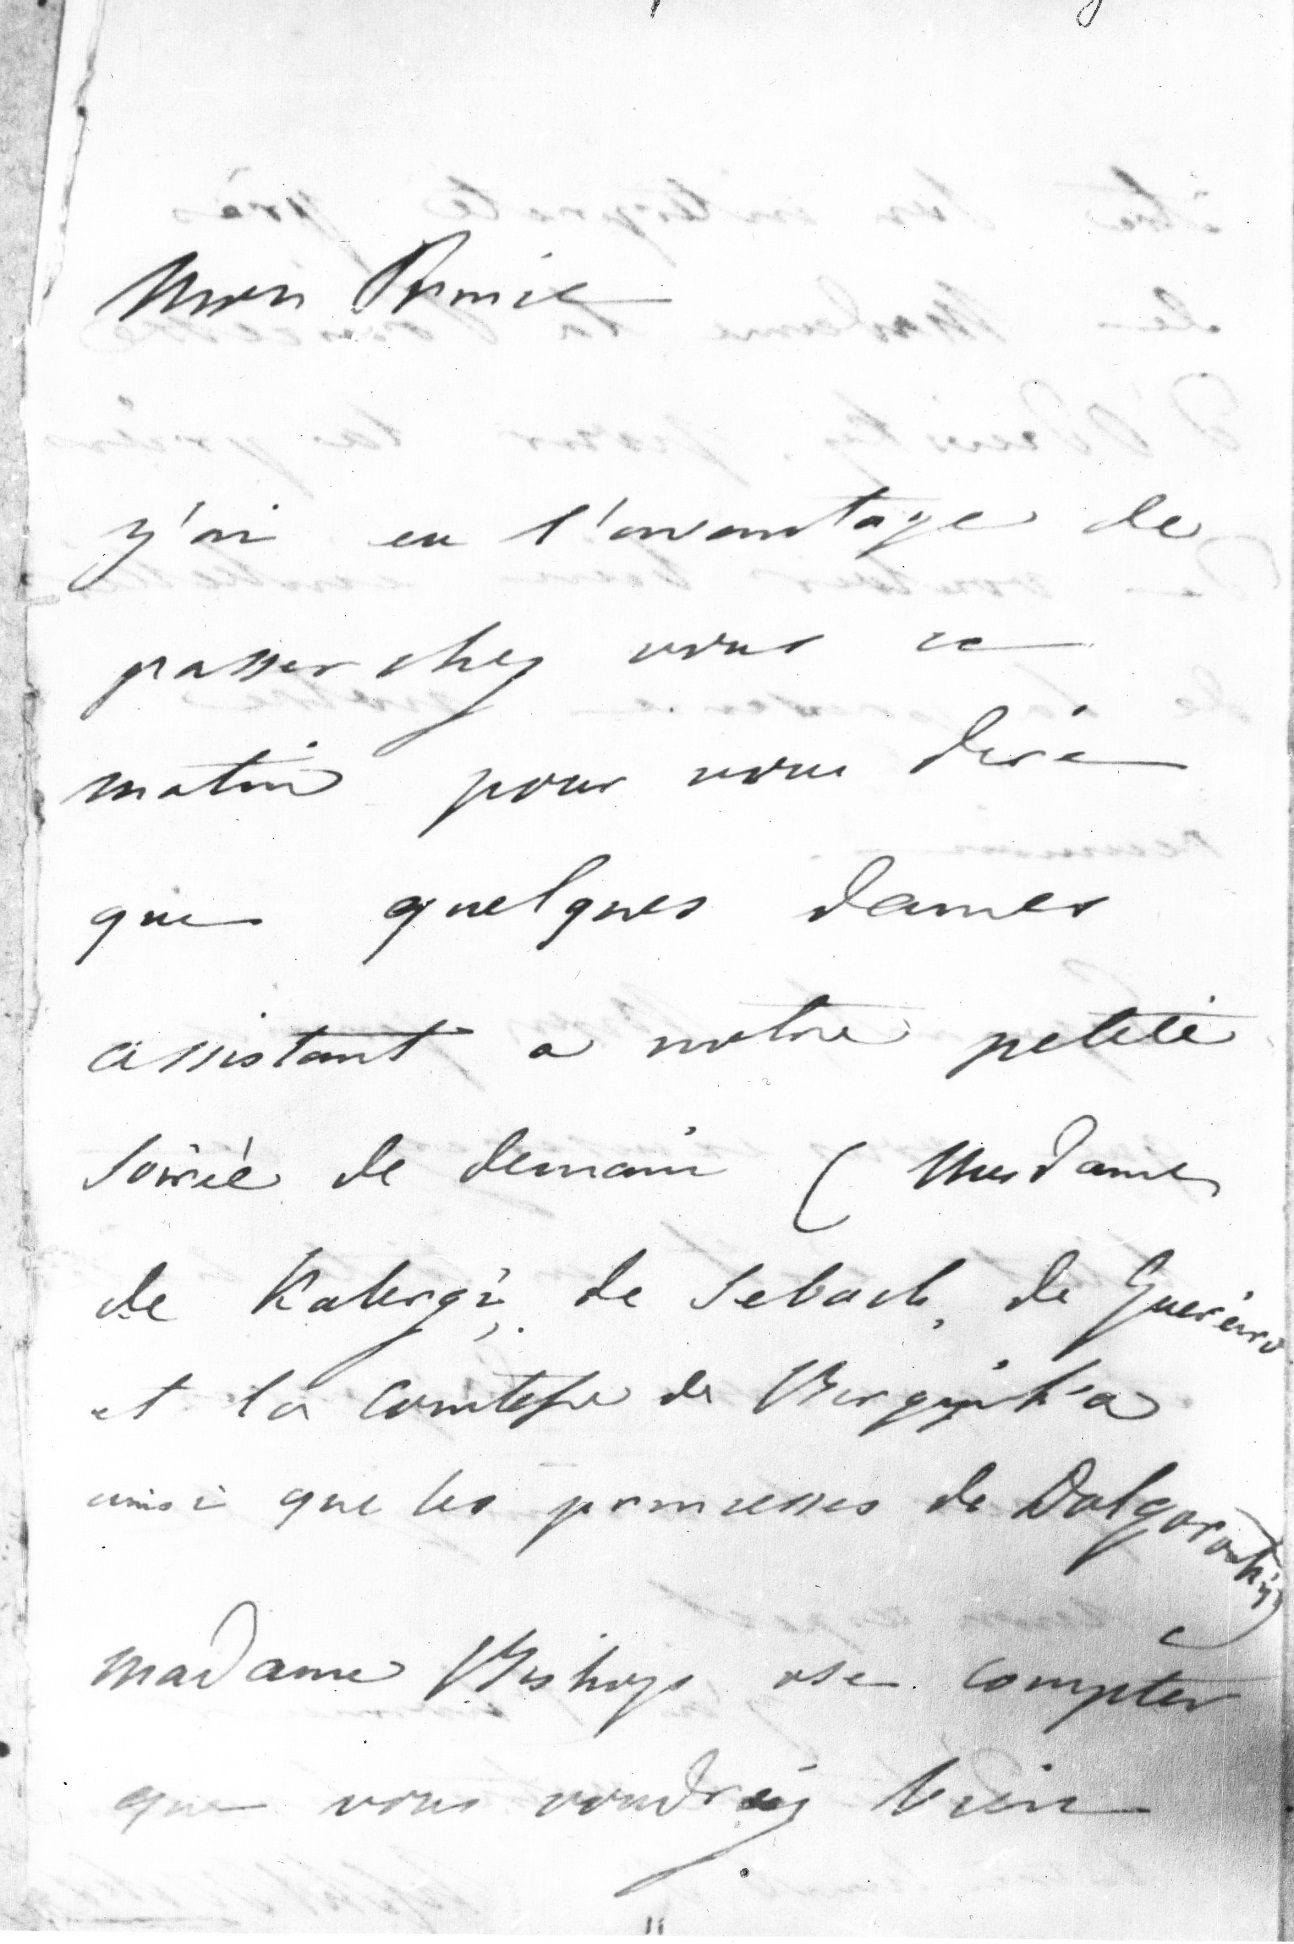 Mon Prince
j'ai eu l'avantage de
passer chez vous ce
matin pour vous dire
que quelques dames
assistant a notre petite
soirée de demain ( Mesdames
de Kalergi, de Sebach, de Guereiro
et la Comtesse de
ainsi que les princesses de Dolgorouky)
madame Bishop ose compter
que vous voudrez bien